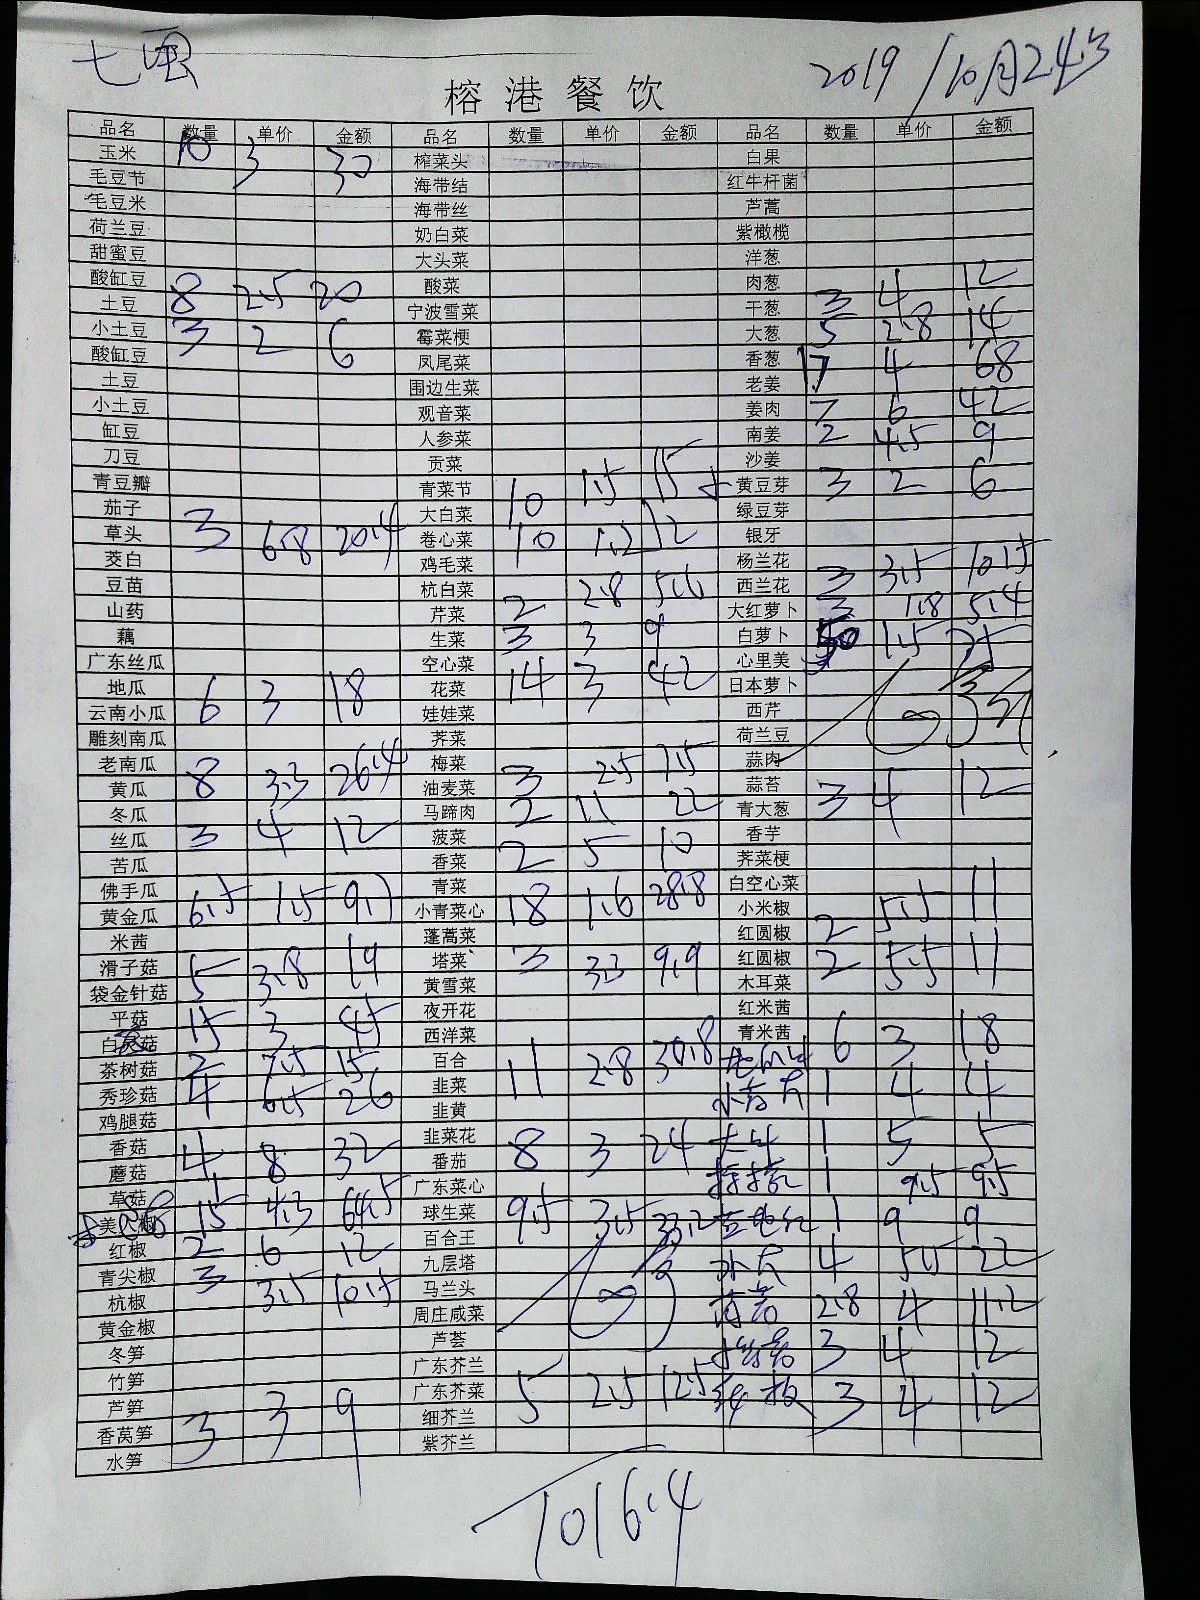 2019/10月24号
榕港餐饮
品名 数量 单价 金额 品名 数量 单价 金额 品名 数量 单价 金额
玉米 10 3 30 榨菜头 白果
毛豆节 海带结 红牛杆菌
毛豆米 海带丝 芦蒿
荷兰豆 奶白菜 紫橄榄
甜蜜豆 大头菜 洋葱
酸缸豆 酸菜 肉葱
土豆 8 2.5 20 宁波雪菜 干葱 3 4 12
小土豆 3 2 6 霉菜梗 大葱 5 2.8 14
酸缸豆 凤尾菜 香葱 17 4 68
土豆 围边生菜 老姜
小土豆 观音菜 姜肉 7 6 42
缸豆 人参菜 南姜 2 4.5 9
刀豆 贡菜 沙姜
青豆瓣 青菜节 黄豆芽 3 2 6
茄子 大白菜 10 1.5 15 绿豆芽
草头 3 6.8 20.4 卷心菜 10 1.2 12 银牙
茭白 鸡毛菜 杨兰花
豆苗 杭白菜 西兰花 3 3.5 10.5
山药 芹菜 2 2.8 5.6 大红萝卜 3 1.8 5.4
藕 生菜 3 3 9 白萝卜 50 1.5 75
广东丝瓜 空心菜 心里美
地瓜 花菜 14 3 42 日本萝卜
云南小瓜 6 3 18 娃娃菜 西芹
雕刻南瓜 荠菜 荷兰豆
老南瓜 梅菜 蒜肉
黄瓜 8 3.3 26.4 油麦菜 3 2.5 7.5 蒜苔
冬瓜 马蹄肉 2 11 22 青大葱 3 4 12
丝瓜 3 4 12 菠菜 香芋
苦瓜 香菜 2 5 10 荠菜梗
佛手瓜 青菜 白空心菜
黄金瓜 6.5 1.5 9.7 小青菜心 18 1.6 28.8 小米椒
米茜 蓬蒿菜 红圆椒 2 5.5 11
滑子菇 塔菜 3 3.3 9.9 红圆椒 2 5.5 11
袋金针菇 5 3.8 19 黄雪菜 木耳菜
平菇 夜开花 红米茜
白灵菇 15 3 45 西洋菜 青米茜 6 3 18
茶树菇 2 7.5 15 百合
秀珍菇 4 6.5 26 韭菜 11 2.8 30.8 1 4 4
鸡腿菇 韭黄
香菇 韭菜花 1 5 5
蘑菇 4 8 32 番茄 8 3 24
草菇 广东菜心 1 9.5 9.5
美人椒 15 4.3 64.5 球生菜 9.5 3.5 33.2 1 9 9
红椒 2 6 12 百合王
青尖椒 3 3.5 10.5 九层塔 4 5.5 22
杭椒 马兰头
黄金椒 周庄咸菜 2.8 4 11.2
冬笋 芦荟
竹笋 广东芥兰 3 4 12
芦笋 广东芥菜 5 2.5 12.5 3 4 12
香莴笋 3 3 9 细芥兰
水笋 紫芥兰
1016.4